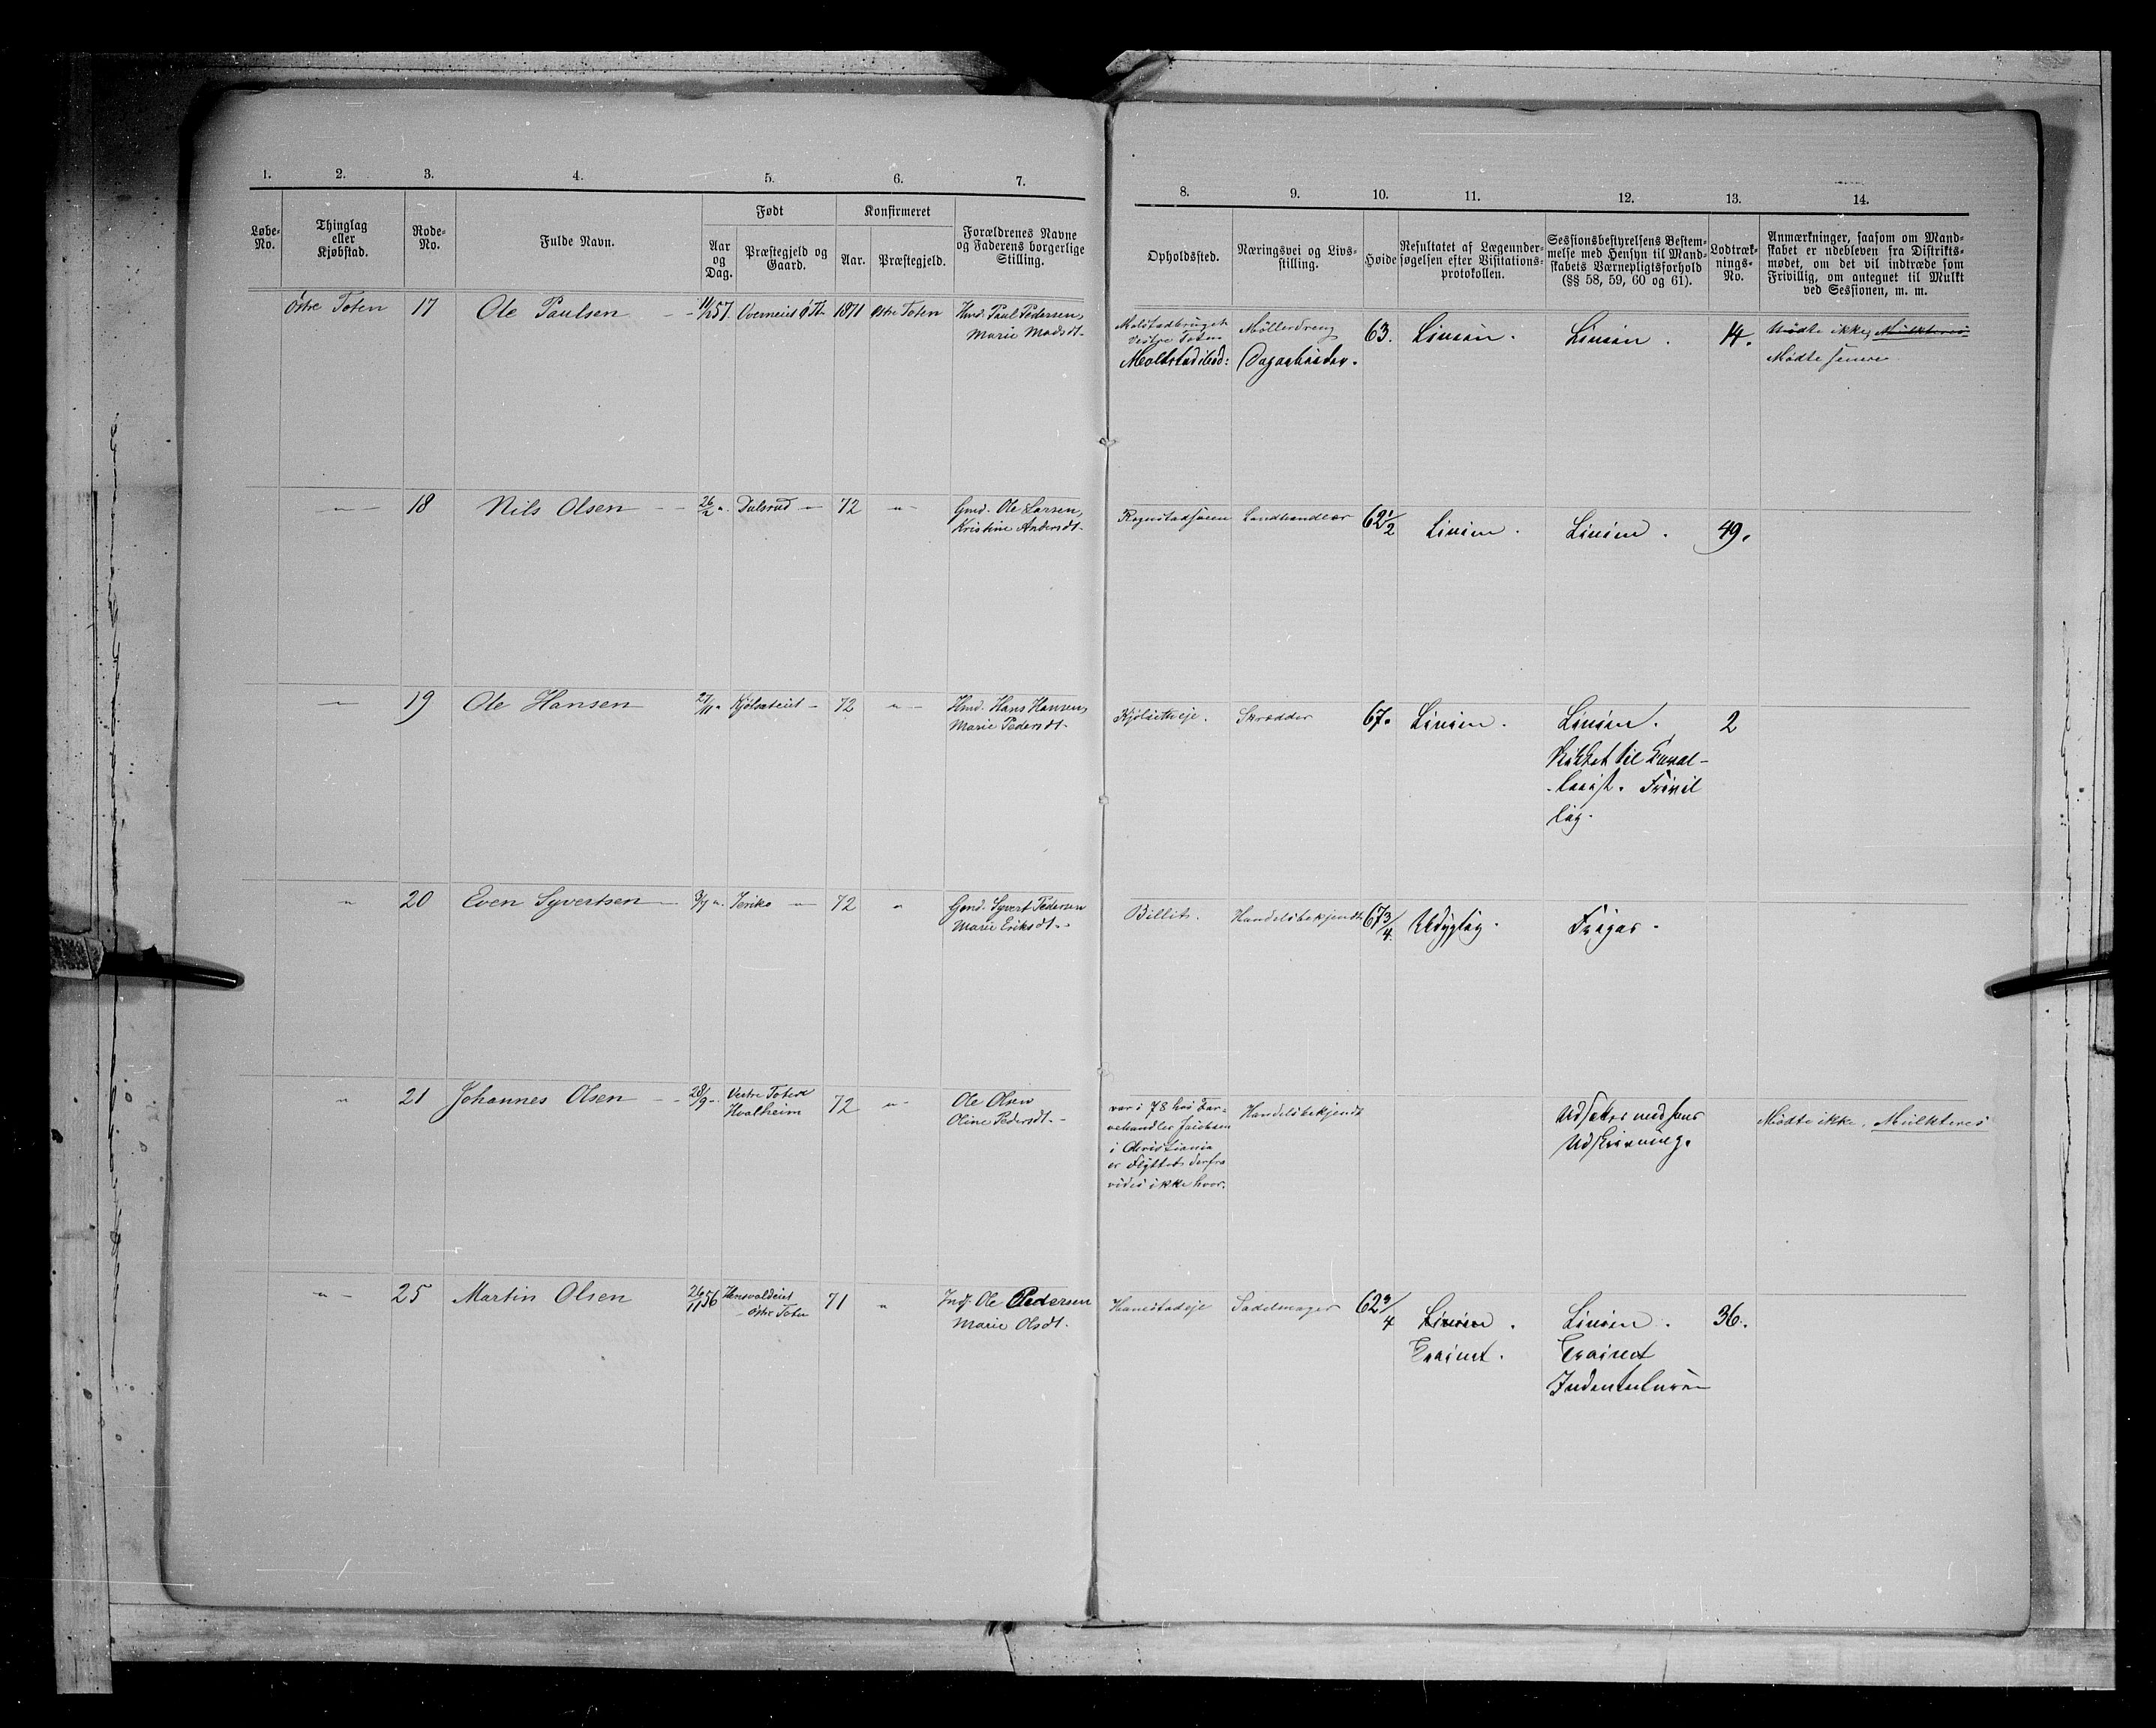 1. 2. 3. 4. 5. 6. 7.
Løbe-
No.
Thinglag
eller
Kjøbstad.
Rode-
No.
Fulde Navn.
Født
Aar
og
Dag.
Præstegjeld og
Gaard.
Konfirmeret
Aar.
Præstegjeld.
Forældrenes Navne
og Faderens borgerlige
Stilling.
8. 9. 10. 11. 12. 13. 14.
Opholdssted.
Næringsvei og Livs-
stilling.
Høide
Resultatet af Lægeunder-
søgelsen efter Visitations-
protokollen.
Sessionsbestyrelsens Bestem-
melse med Hensyn til Mand-
skabets Værnepligtsforhold
(§§ 58, 59, 60 og 61).
Lodtræk-
nings-
No.
Anmærkninger, saasom om Mand-
skabet er udebleven fra Distrikts-
mødet, om det vil indtræde som
Frivillig, om antegnet til Mulkt
ved Sessionen, m. m.
Østre Toten 17 Ole Paulsen 57. 1871 Østre Toten
Hmd. Paul Pedersen,
Marie Madsdt.
Vestre Toten
Møllerdreng
Dagarbeider.
63. Linien. Linien. 14.
Mødte ikke, Mulkteres
Mødte senere
" 18 Nils Olsen 26/2 " Dulsrud " 72 "
Gmd. Ole Larsen,
Kristine Andersdt.
Landhandler 62 1/2 Linien. Linien. 49.
" 19 Ole Hansen 27/11 " Kjølseteiet " 72 "
Hmd. Hans Hansen,
Marie Pedersdt.
Skrædder 67. Linien. Linien. 2
Skikket til Kaval-
lerist. Frivil
lig.
" 20 Even Syvertsen Jeriko " 72 "
Gmd. Syvert Pedersen
Marie Eriksdt.
Billit. Handelsbekjendt 67 3/4. Udygtig. Frigar.
" 21 Johannes Olsen 28/9 " Vestre Toten
Hvalheim 72 "
Ole Olsen
Oline Pedersdt.
var i 78 hos Far-
vehandler Jacobsen
i Christiania
er flyttet derfra
vides ikke hvor.
Handelsbekjendt
Udskrivning.
Mødte ikke, Mulkteres
" 25 Martin Olsen 26/11 56 Hensvaldeiet
Østre Toten 71 "
Indf. Ole Pedersen
Marie Olsdt.
Hanestadeje Sadelmager 62 3/4 Linien. Linien. 36.
Trainet. Trainet